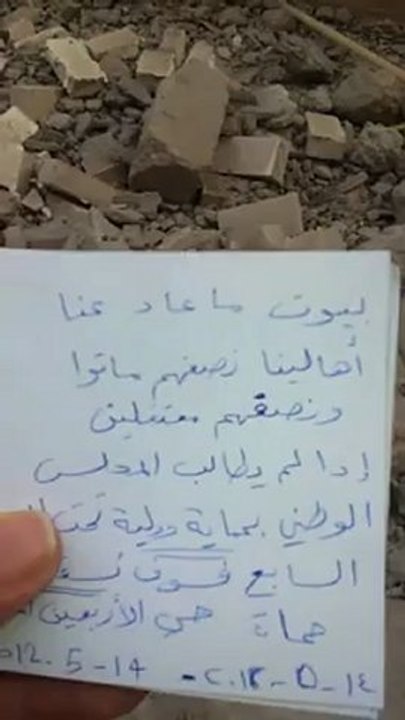 بيوت ما عاد عنا
أهالينا نصفهم ماتوا
ونصفهم معتقلين
إذا لم يطالب المجلس
الوطني بحماية دولية تحت
السابع فسوف
حماة حي الأربعين
2012-5-14 ٢٠١٢-٥-١٤